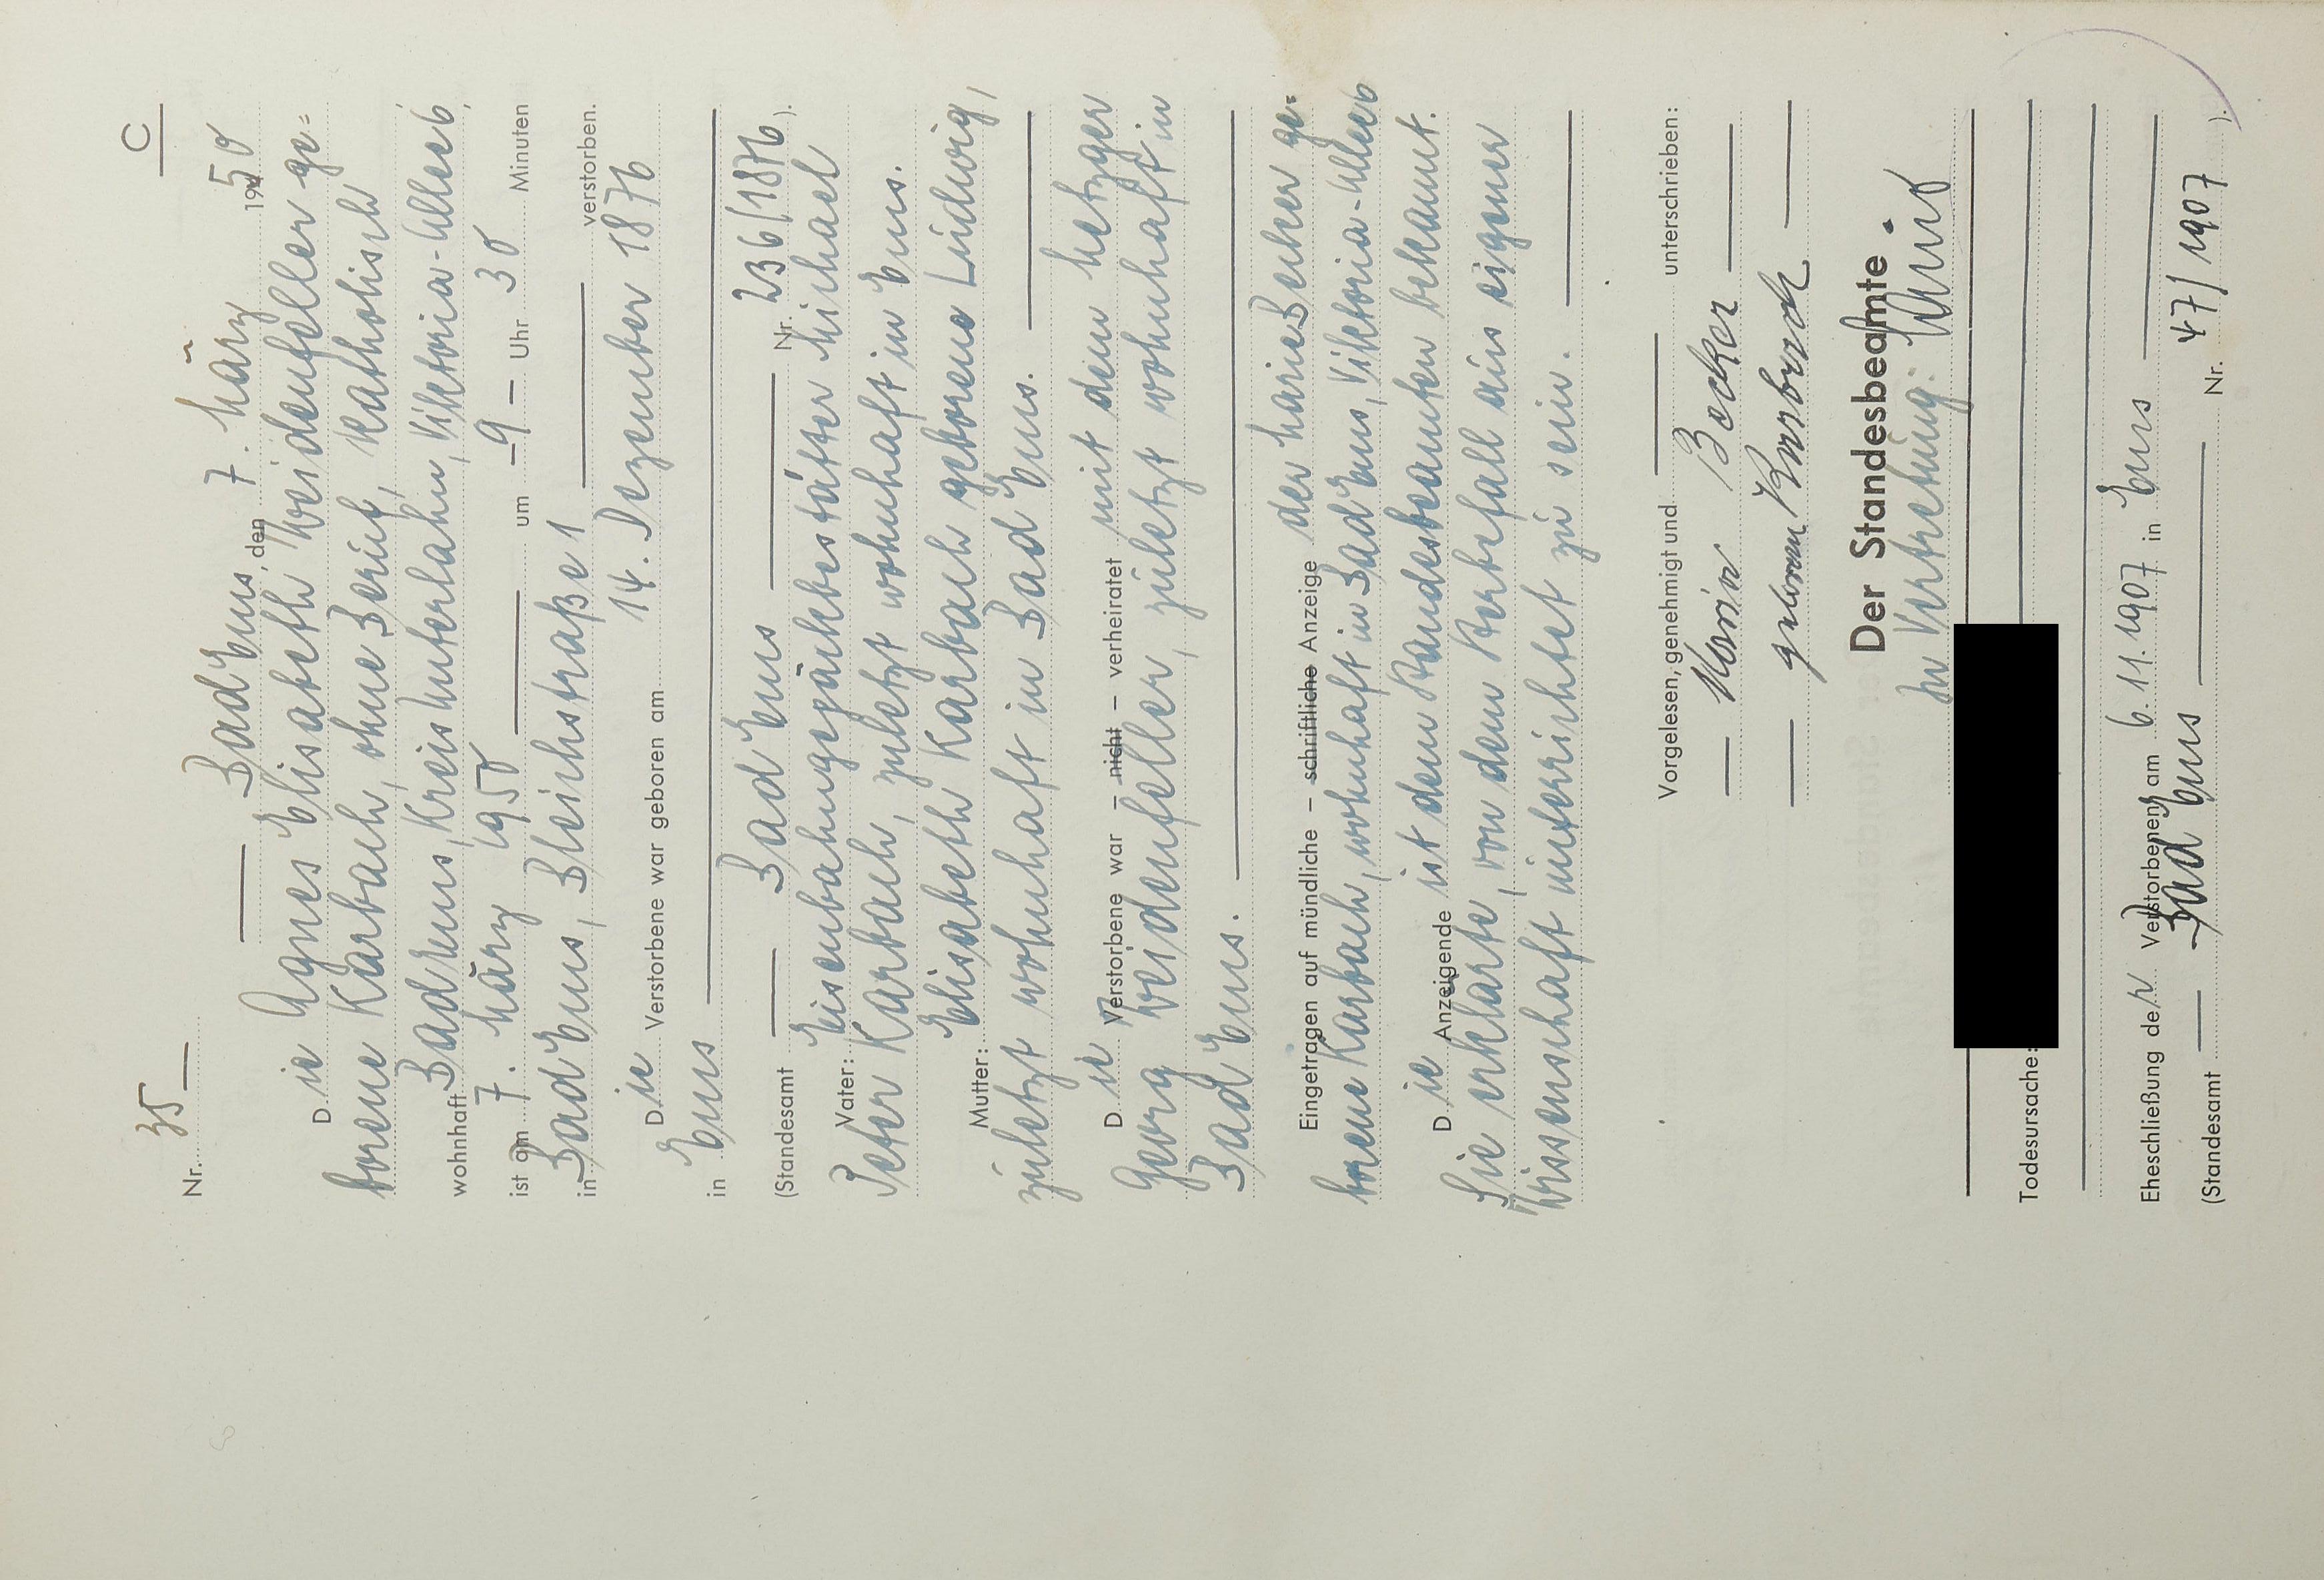 C
Nr. 35
Bad Ems, den 7. März 1950
Die Agnes Elisabeth Weidenfeller ge=
borene Karbach, ohne Beruf, katholisch
wohnhaft Bad Ems, Kreis Unterlahn, Viktoria-Allee 6,
ist am 7. März 1950 um 9 Uhr 30 Minuten
in Bad Ems, Bleichstraße 1 verstorben.
Die Verstorbene war geboren am 14. Dezember 1876
in Ems
(Standesamt Bad Ems Nr. 236/1876).
Vater: Eisenbahngepäckbestätter Michael
Peter Karbach, zuletzt wohnhaft in Ems.
Mutter: Elisabeth Karbach geborene Ludwig,
zuletzt wohnhaft in Bad Ems.
Die Verstorbene war – nicht – verheiratet mit dem Metzger
Georg Weidenfeller, zuletzt wohnhaft in
Bad Ems.
Eingetragen auf mündliche – schriftliche Anzeige der Marie Becker ge=
borene Karbach, wohnhaft in Bad Ems, Viktoria-Allee 6
Die Anzeigende ist dem Standesbeamten bekannt.
Sie erklärte, von dem Sterbefall aus eigener
Wissenschaft unterrichtet zu sein.
Vorgelesen, genehmigt und unterschrieben:
Maria Becker
geborene Karbach
Der Standesbeamte.
In Vertretung:
Todesursache:
Eheschließung der Verstorbenen am 6.11.1907 in Ems
(Standesamt Bad Ems Nr. 47/1907).